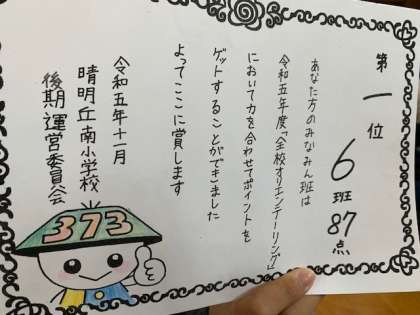 第一位
6班87点
あなた方のみなみん班は
令和五年度「全校オリエンテーリング」
において力を合わせてポイントを
ゲットすることができました
よってここに賞します
令和五年十一月
晴明丘南小学校
後期運営委員会
373